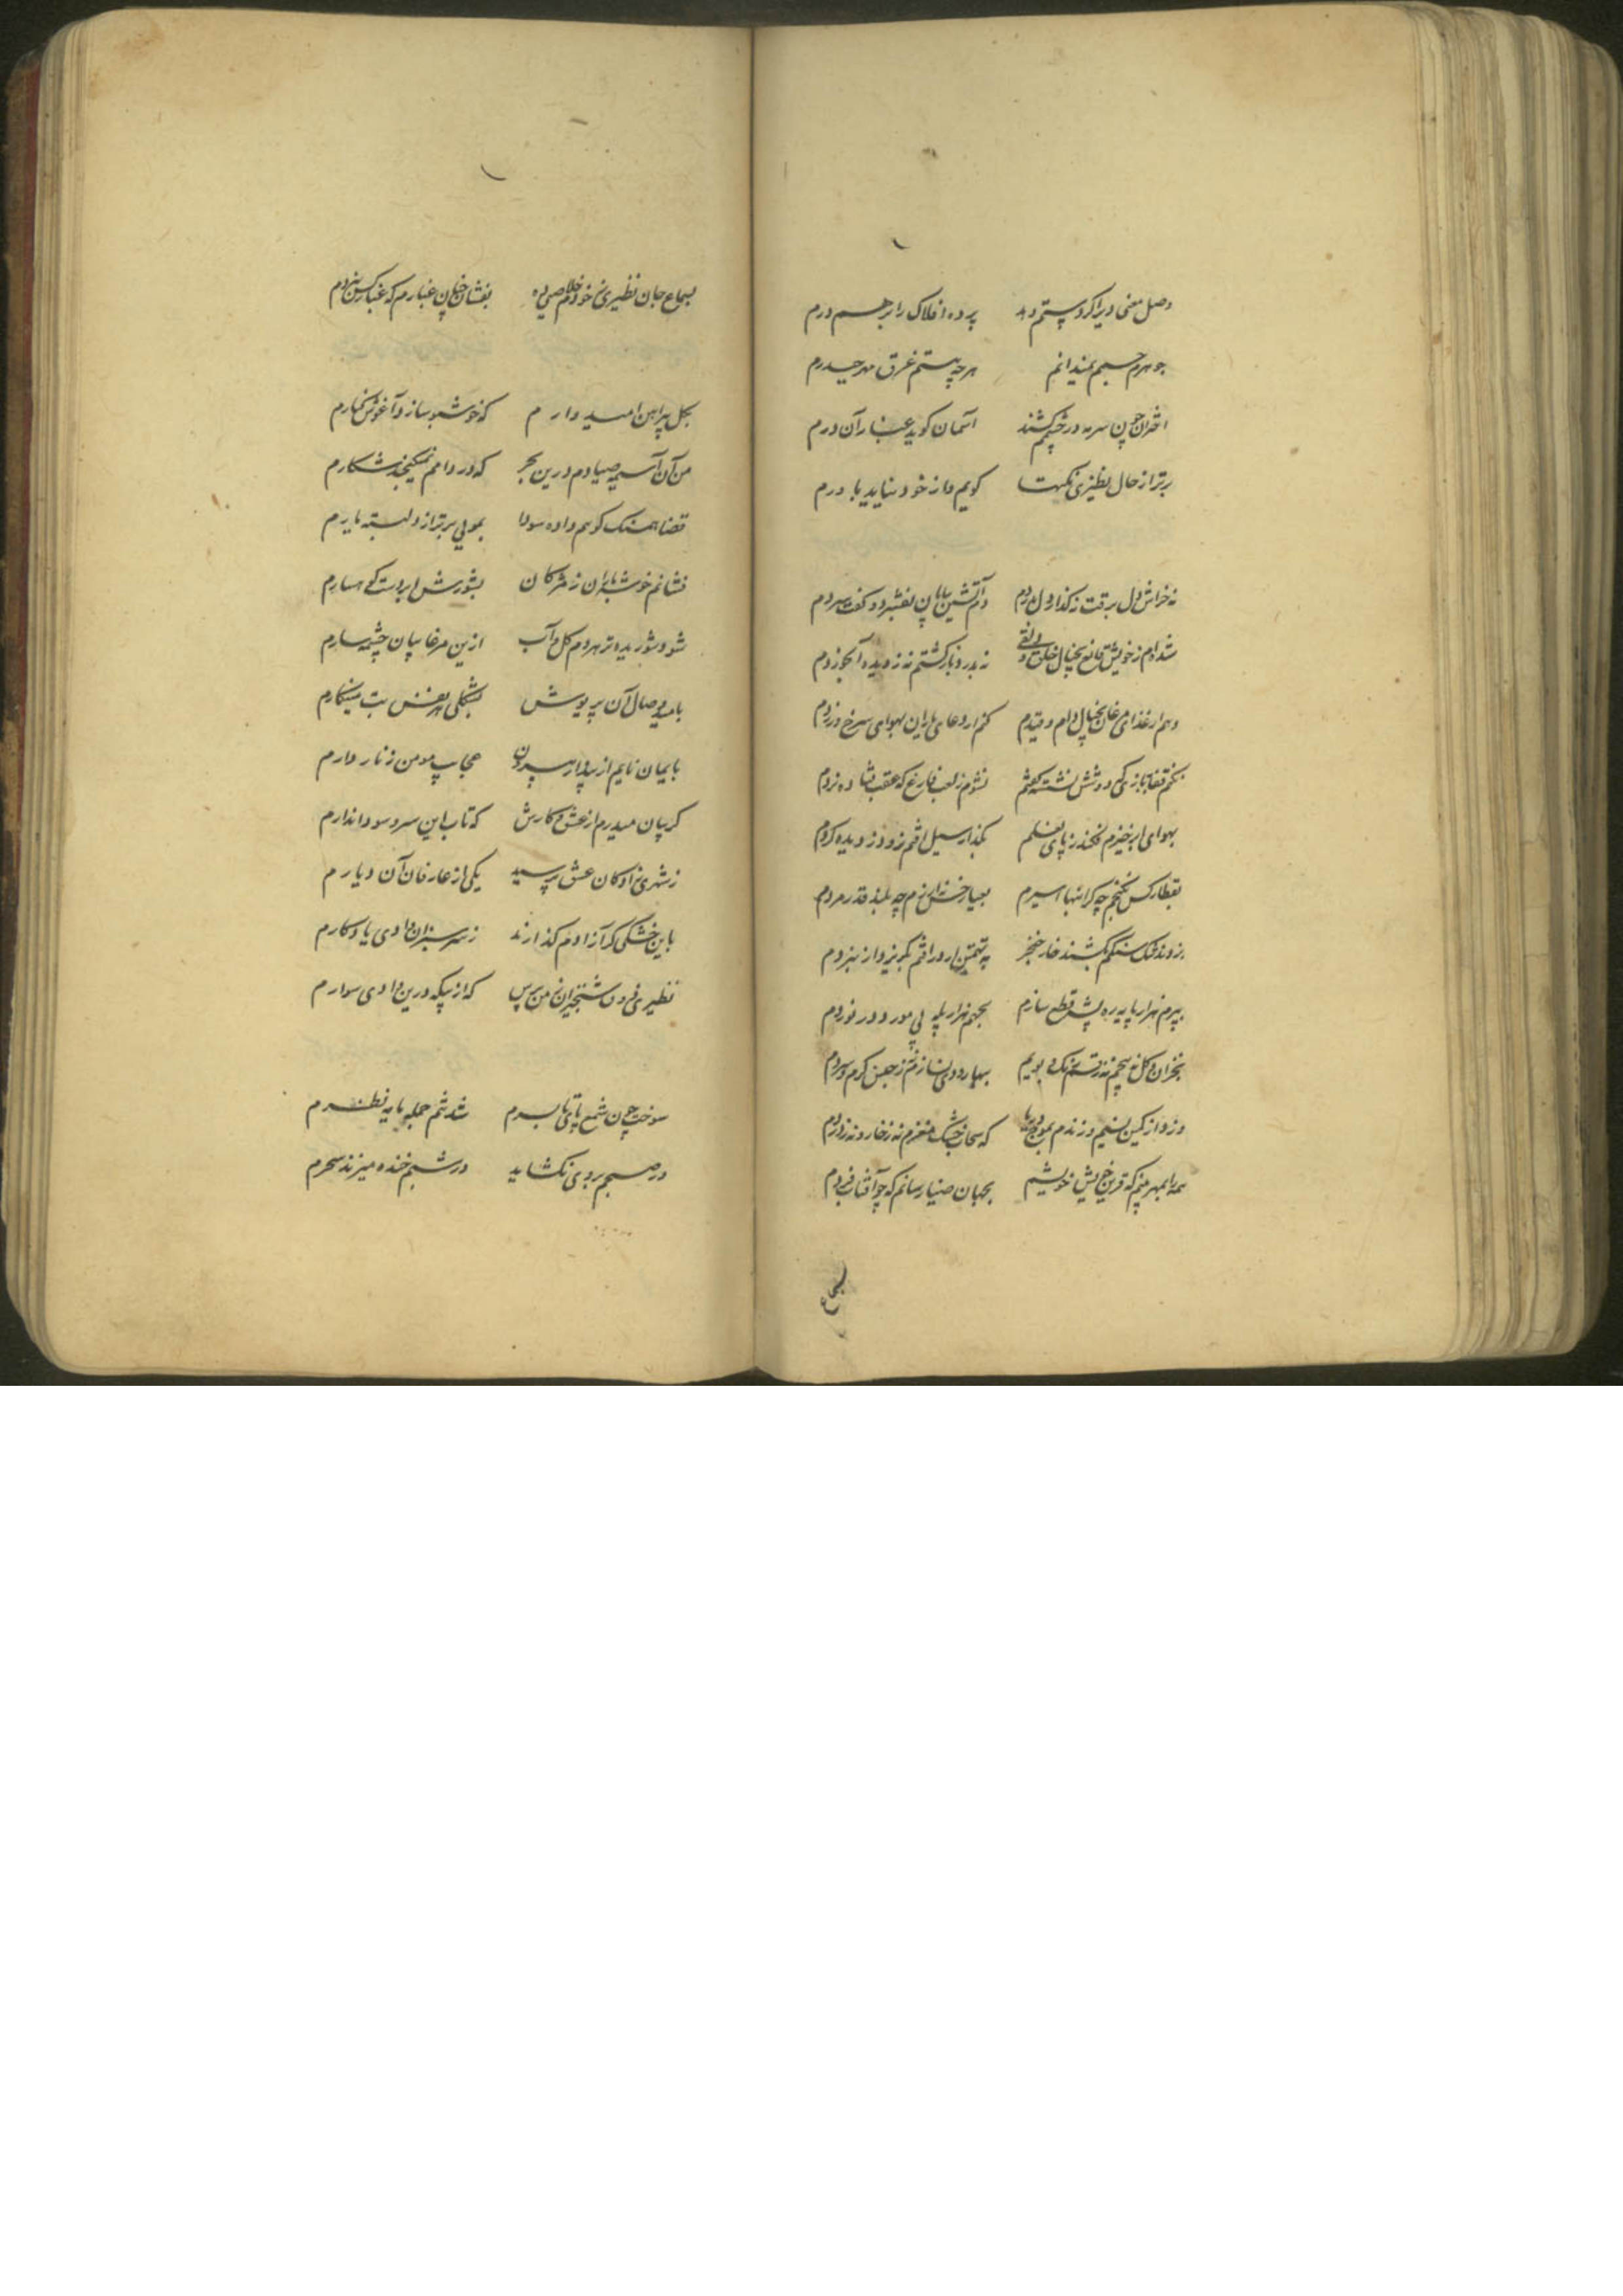 وصل معنی ویرا کرد پرستم در پرده افلاک را بر هم درم
جوهرم جسم نمیدانم هر چه هستم غرق مهر حیدرم
اختران چون سرمه در چشمم کشند آسمان گوید غبار آن درم
برتر از حال نظیری نکهت گویم و از خود نیاید باورم
نه خراش دل برقت نه گداز دل بدردم دم آتشین بیابان نفسرد و گفت سردم
شده‌ام ز خویش قانع بخیال خلق و نه بدرد باز گشتم نه ز دیده آب خوردم
دهم ار غذای مرغان بخیال دام و قیدم کنم ار دعای یاران بهوای سرخ و زردم
نکنم قفا ببازی که دو شش نشسته نقشم نشوم ز لعب فارغ که عقب فتاده نردم
بهوای ابر خیزم فکند ز پای نعلم بگذار سیل افتم نرود ز دیده گردم
بقطار کس نگنجم چه گرانبها اسیرم بعیار خس نیرزم چه بلند قدر مردم
بزوند سنگم بکشند خار خنجر به تهمتن ار در افتم بگریزد از نبردم
بپرم هزار پایه ره پشه قطع سازم بجهم هزار پله پی مور در نوردم
بخزان گل نه پیچم نه ز رستم رنگ و بویم ببهار و دی نسازم نه ز جنس گرم و سردم
وزد از کمین نسیم و زندم بموج دریا که سحاب خشک مغزم نه ز خار و نه ز وردم
همه را بمهر بینم که قرین خویش خویشم بجهان ضیا رسانم که چو آفتاب فردم
بسماع
بسماع جان نظیری ز خودم خلاصیی ده بفشان چنان غبارم که غبار کس نگردم
بگل پیراهن امید دارم که خوشبو سازد آغوش و کنارم
من آن آسیمه صیادم درین بحر که در دامم نمیگنجد شکارم
قضا همسنگ کوهم داده سودا بمویی برتر از دل بسته بارم
فشانم خوشه باران ز مژگان بشورش ابر دست کهسارم
شود شوریده تر هر دم گل آب ازین مرغابیان چشمه سارم
بامید وصال آن پریوش بشکلی هر نفس بت مینگارم
بایمان نایم از پندار بیرون حجاب مومن زنار دارم
گریبان میدرم از عشق و کارش که تاب این سر و سودا ندارم
ز شهری زادگان عشق پرسید یکی از عارفان آن دیارم
باین خشکی گر آزادم گذارند ز سرسبزان وادی یادگارم
نظیری فردان شبخیزان ز من پرس که از پیکه درین وادی سوارم
سوخت چون شمع پای تا بسرم شد تنم جمله مایه نظرم
در صبحم بروی نگشاید در شبم خنده میزند سحرم